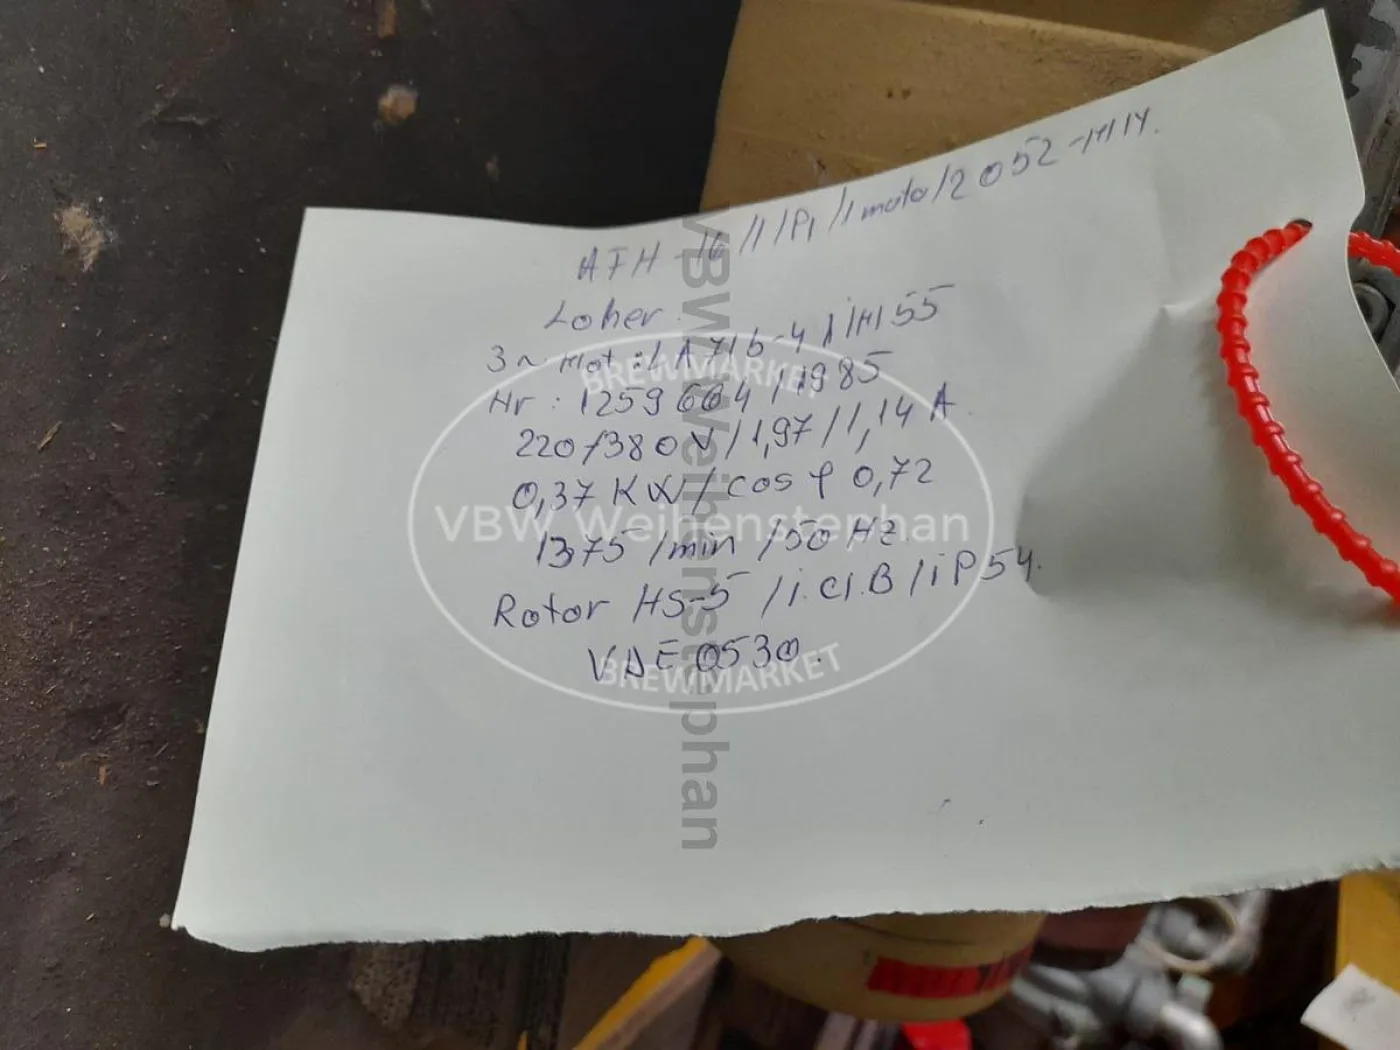 AFH-16/1/P1/1 moto/2052-M14.
Loher.
3~ Mot: LA71b-4
Nr: 1259664/1985
220/380V/1,97/1,14 A.
0,37 KW/cos φ 0,72
1375/min/50 Hz.
Rotor HS-5/i.cl.B/iP54.
VDE 0530.
BREWMARKET
VBW Weihenstephan
BREWMARKET
VBW Weihenstephan